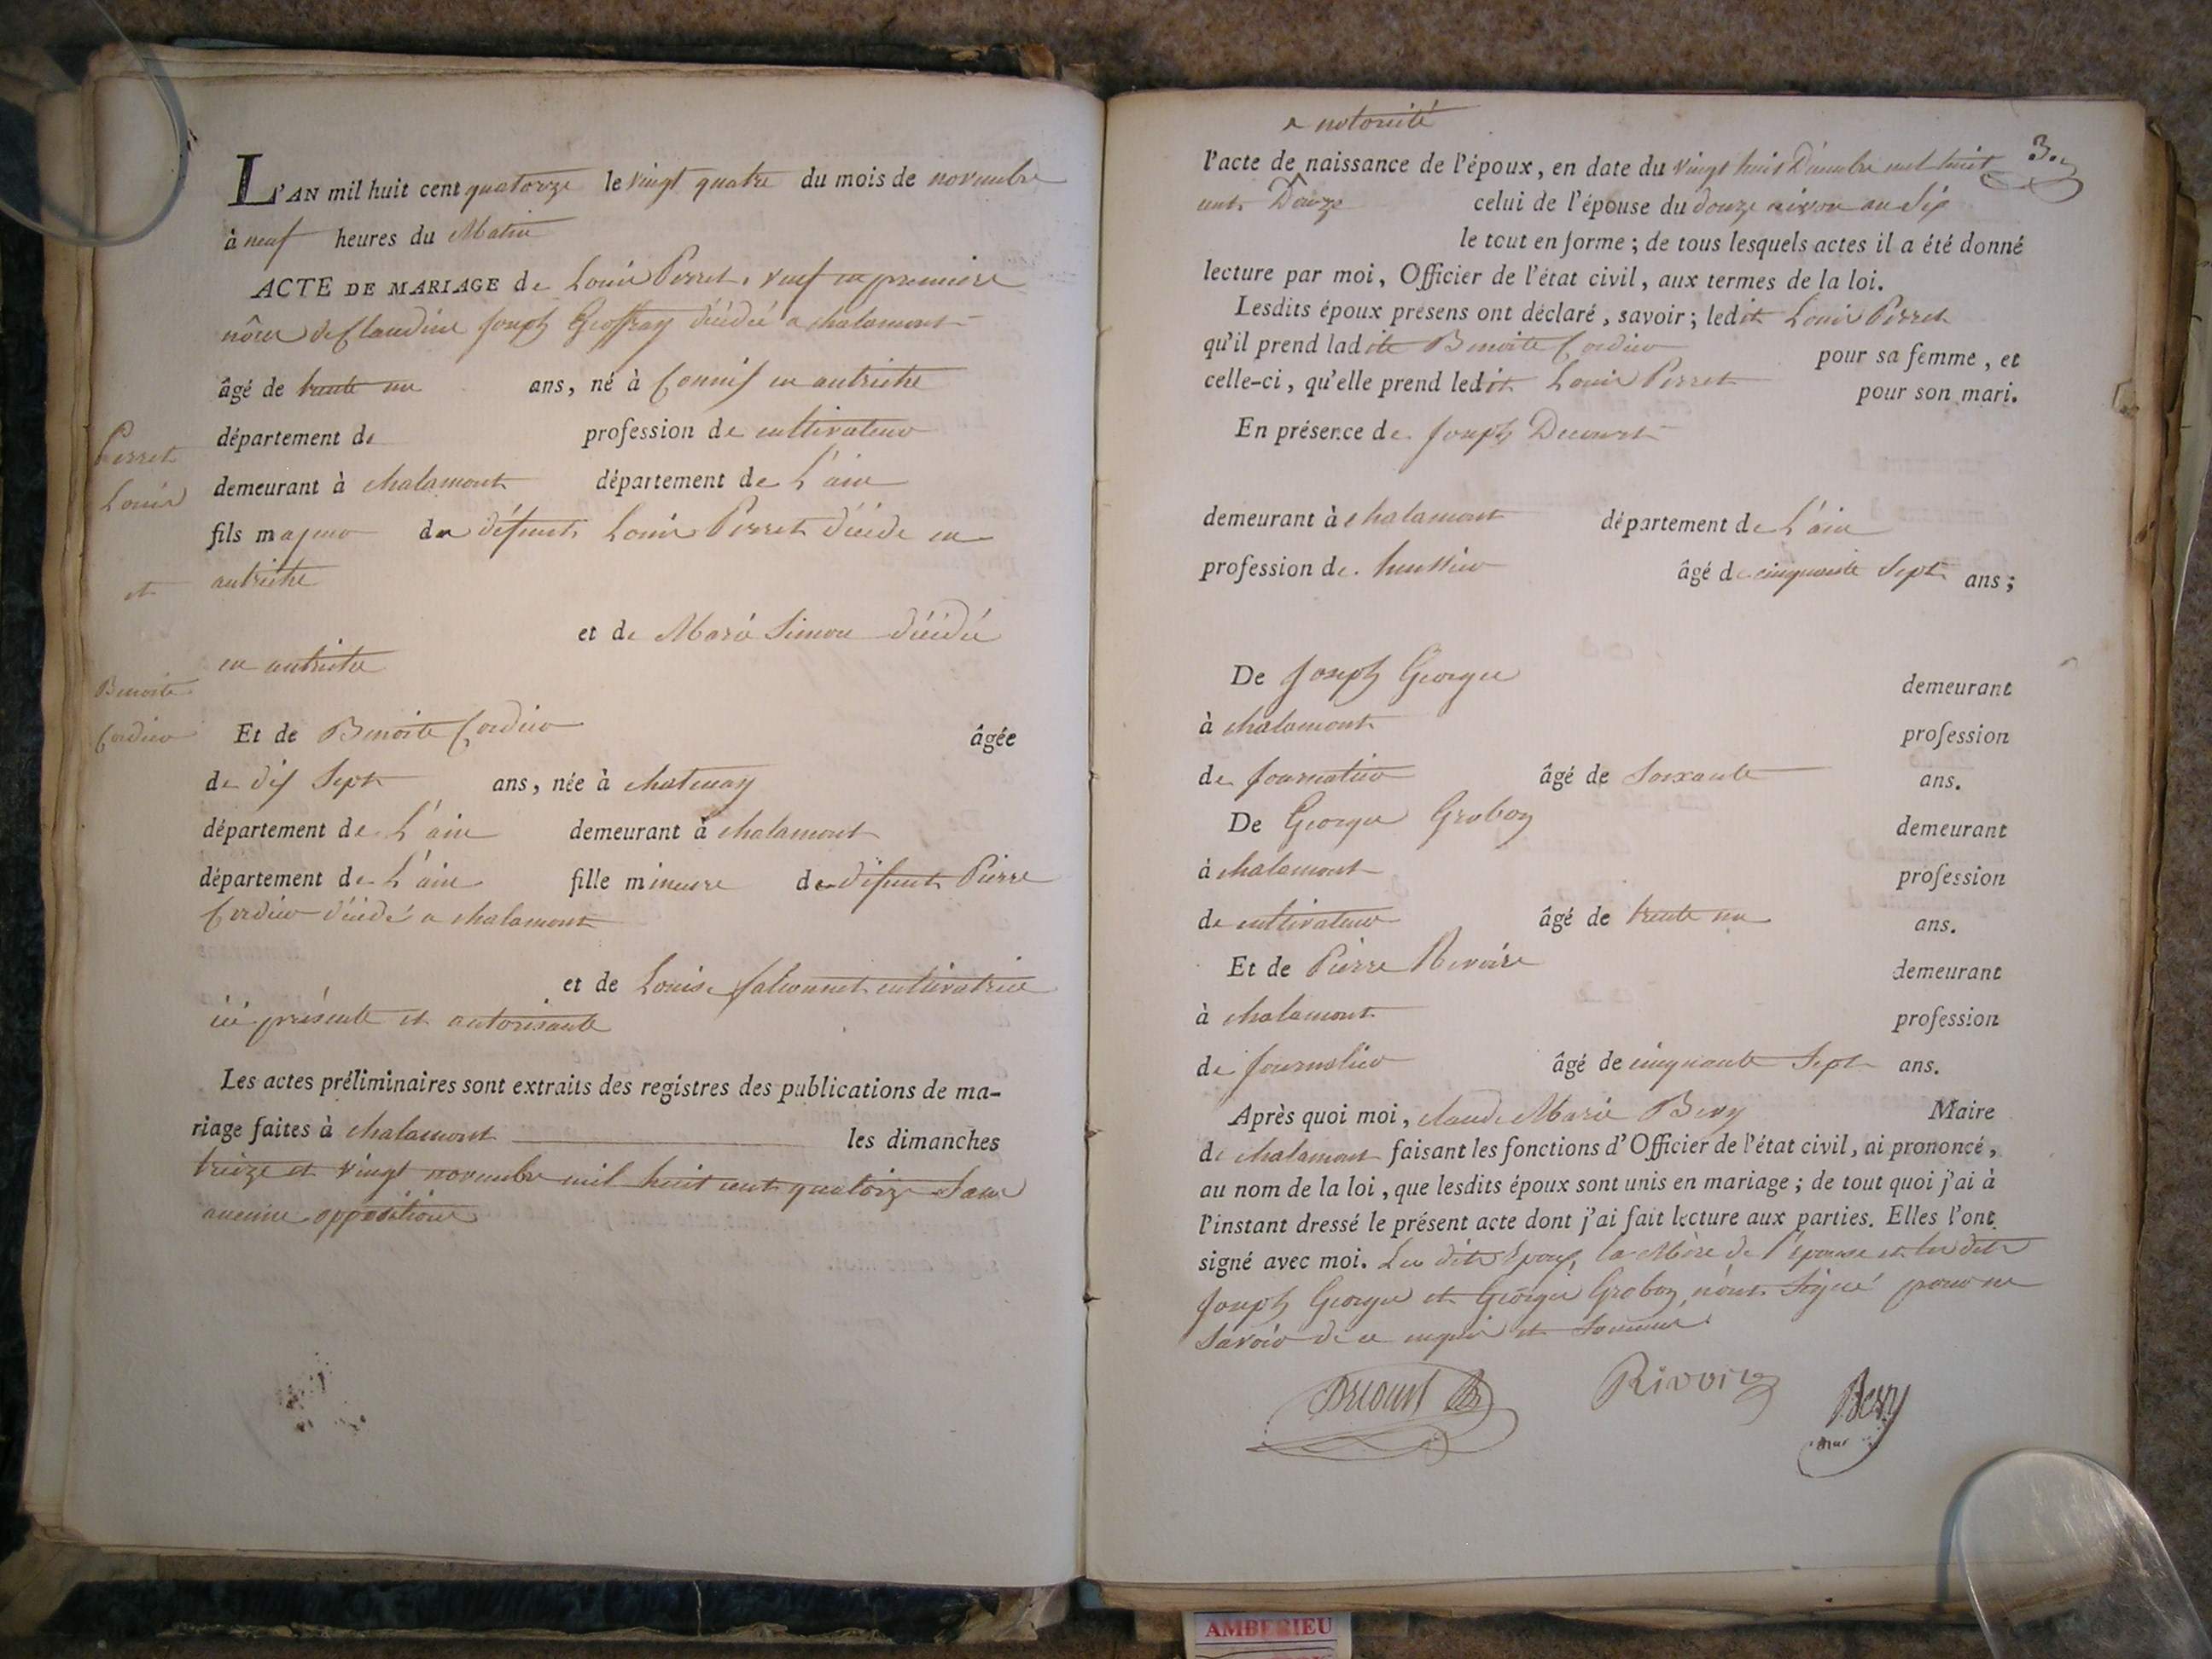 L'AN mil huit cent quatorze le vingt quatre du mois de novembre
à neuf heures du Matin
ACTE DE MARIAGE de Louis Perret, veuf en premiere
nôces de Claudine Joseph Geoffray décédée a chalamont
âgé de trente un ans, né à en autriche
département de profession de cultivateur
Perret
demeurant à chalamont département de L'ain
Louis
fils majeur de défunt Louis Perret décédé en
et
autriche
et de Marie Simon décédée
en autriche
Benoite
Cordier
Et de Benoite Cordier âgée
de dix Sept ans, née à chatenay
département de L'ain demeurant à chalamont
département de L'ain fille mineure de défunt Pierre
Cordier décédé a chalamont
et de Louise falconnet cultivatrice
ici présente et autorisante
Les actes préliminaires sont extraits des registres des publications de ma-
riage faites à chalamont les dimanches
treize et vingt novembre mil huit cent quatorze Sans
aucune opposition
3.
notorieté
l'acte de naissance de l'époux, en date du vingt huit Décembre mil huit
cent Douze celui de l'épouse du douze nivose an Six
le tout en forme ; de tous lesquels actes il a été donné
lecture par moi, Officier de l'état civil, aux termes de la loi.
Lesdits époux présens ont déclaré, savoir ; ledit Louis Perret
qu'il prend ladite Benoite Cordier pour sa femme, et
celle-ci, qu'elle prend ledit Louis Perret pour son mari.
En présence de Joseph Decourt
demeurant à chalamont département de L'ain
profession de huissier âgé de cinquante Sept ans ;
De Joseph George demeurant
à chalamont profession
de Journalier âgé de Soixante ans.
De George Grobon demeurant
à chalamont profession
de cultivateur âgé de trente un ans.
Et de Pierre Rivoire demeurant
à chalamont profession
de Journalier âgé de cinquante Sept ans.
Après quoi moi, claude Marie Bevy Maire
de chalamont faisant les fonctions d'Officier de l'état civil, ai prononcé,
au nom de la loi, que lesdits époux sont unis en mariage ; de tout quoi j'ai à
l'instant dressé le présent acte dont j'ai fait lecture aux parties. Elles l'ont
signé avec moi. Les dits Epoux, la Mère de l'épouse et les dits
Joseph George et George Grobon, n'ont Signé pour ne
Savoir de ce enquis et Sommés
Decourt
Rivoire
Bevy
AMBERIEU